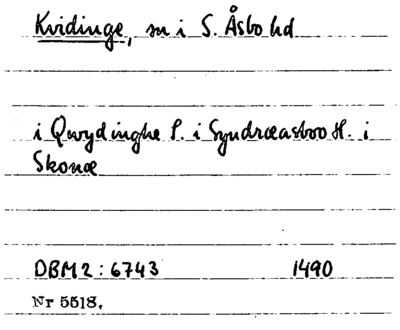 Kvidinge, sn i S. Åsbo hd
i Qwydinghe S. i Syndræasboo H. i
Skonæ
DBM2:6743 1490
Nr 5518.